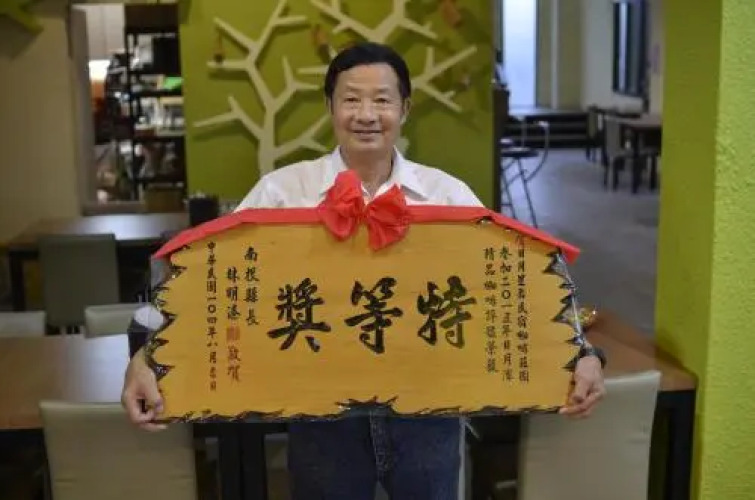 日月星君民宿咖啡莊園
參加二〇一五年日月潭
精品咖啡評鑑榮獲
特等獎
南投縣長
林明溱 敬賀
中華民國一〇四年八月吉日